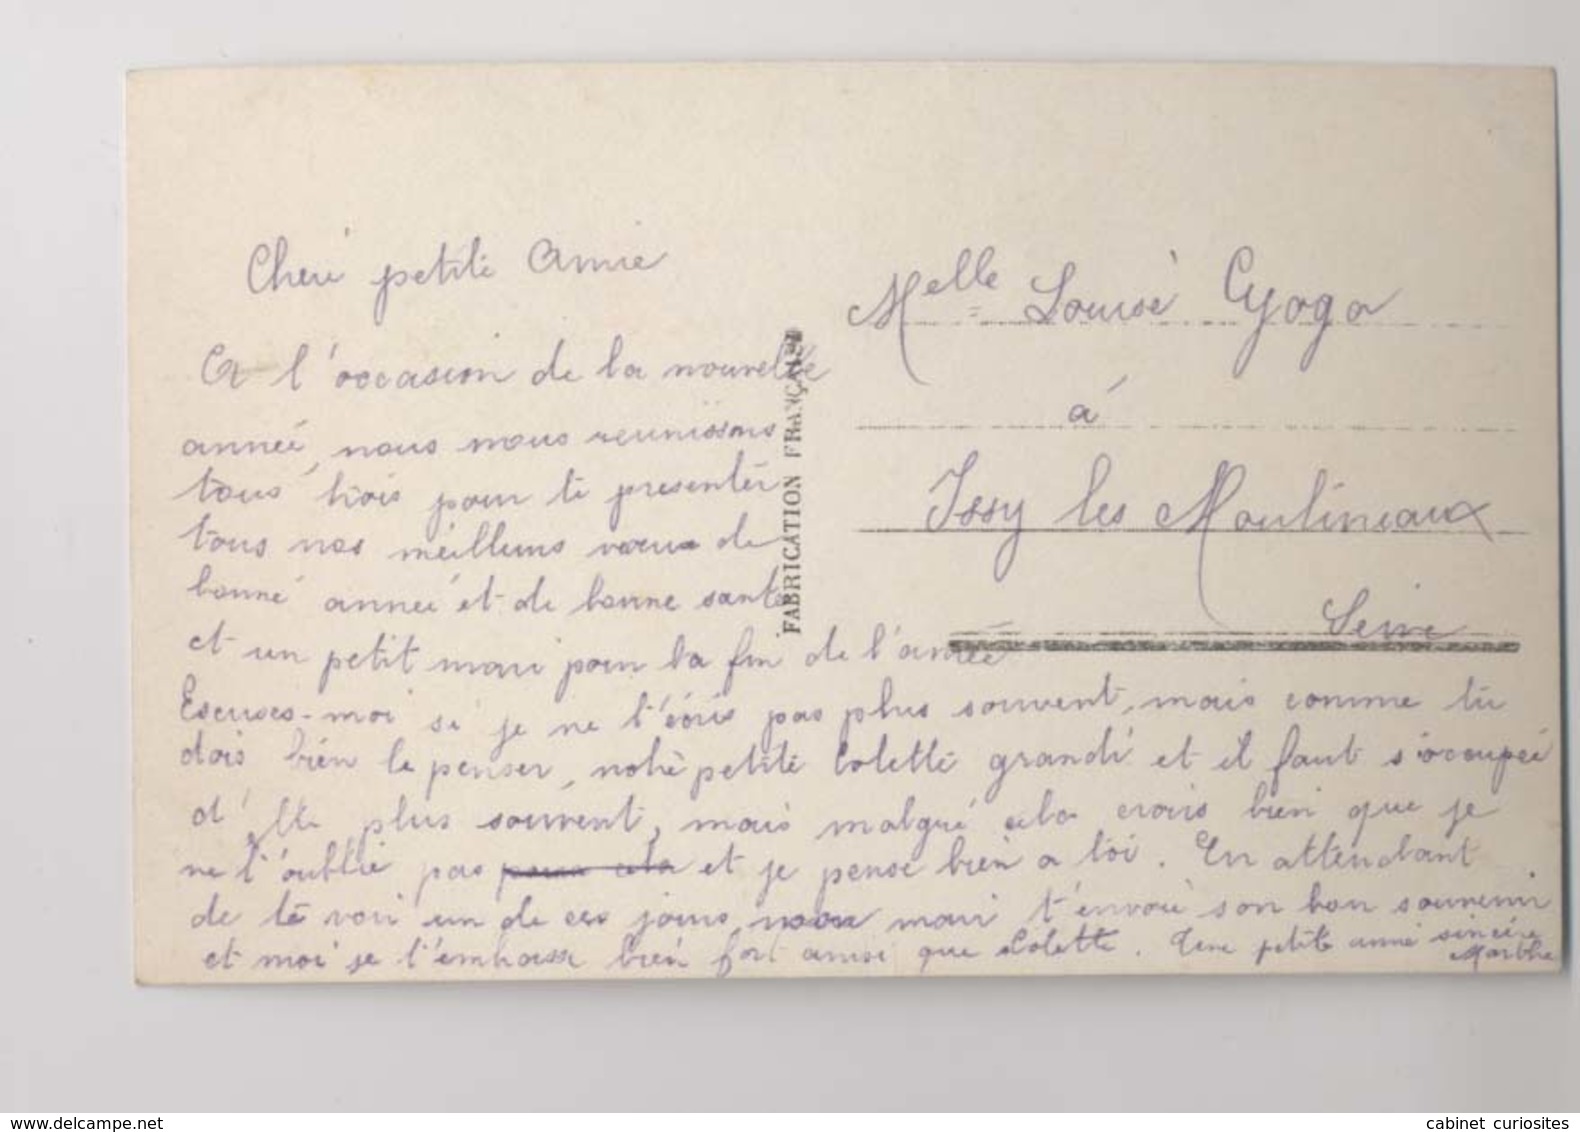 Cheré petite Amie
A l'occasion de la nouvelle
année, nous nous reunissons
tous trois pour te presenter
tous nos meilleurs vœux de
bonne année et de bonne santé
et un petit mari pour la fin de l'année
Escuses-moi si je ne t'écris pas plus souvent, mais comme tu
dois bien le penser, notre petite Colette grandi et il faut s'occupée
d'elle plus souvent, mais malgré cela crois bien que je
ne t'oublie pas pour cela et je pense bien a toi. En attendant
de te voir un de ces jours, mon mari t'envoie son bon souvenir
et moi je t'embrasse bien fort ainsi que Colette. Une petite amie sincère
Marthe
FABRICATION FRANÇAISE
Melle Louise Gyoga
à
Issy les Moulineaux
Seine
www.delcampe.net
cabinet curiosites